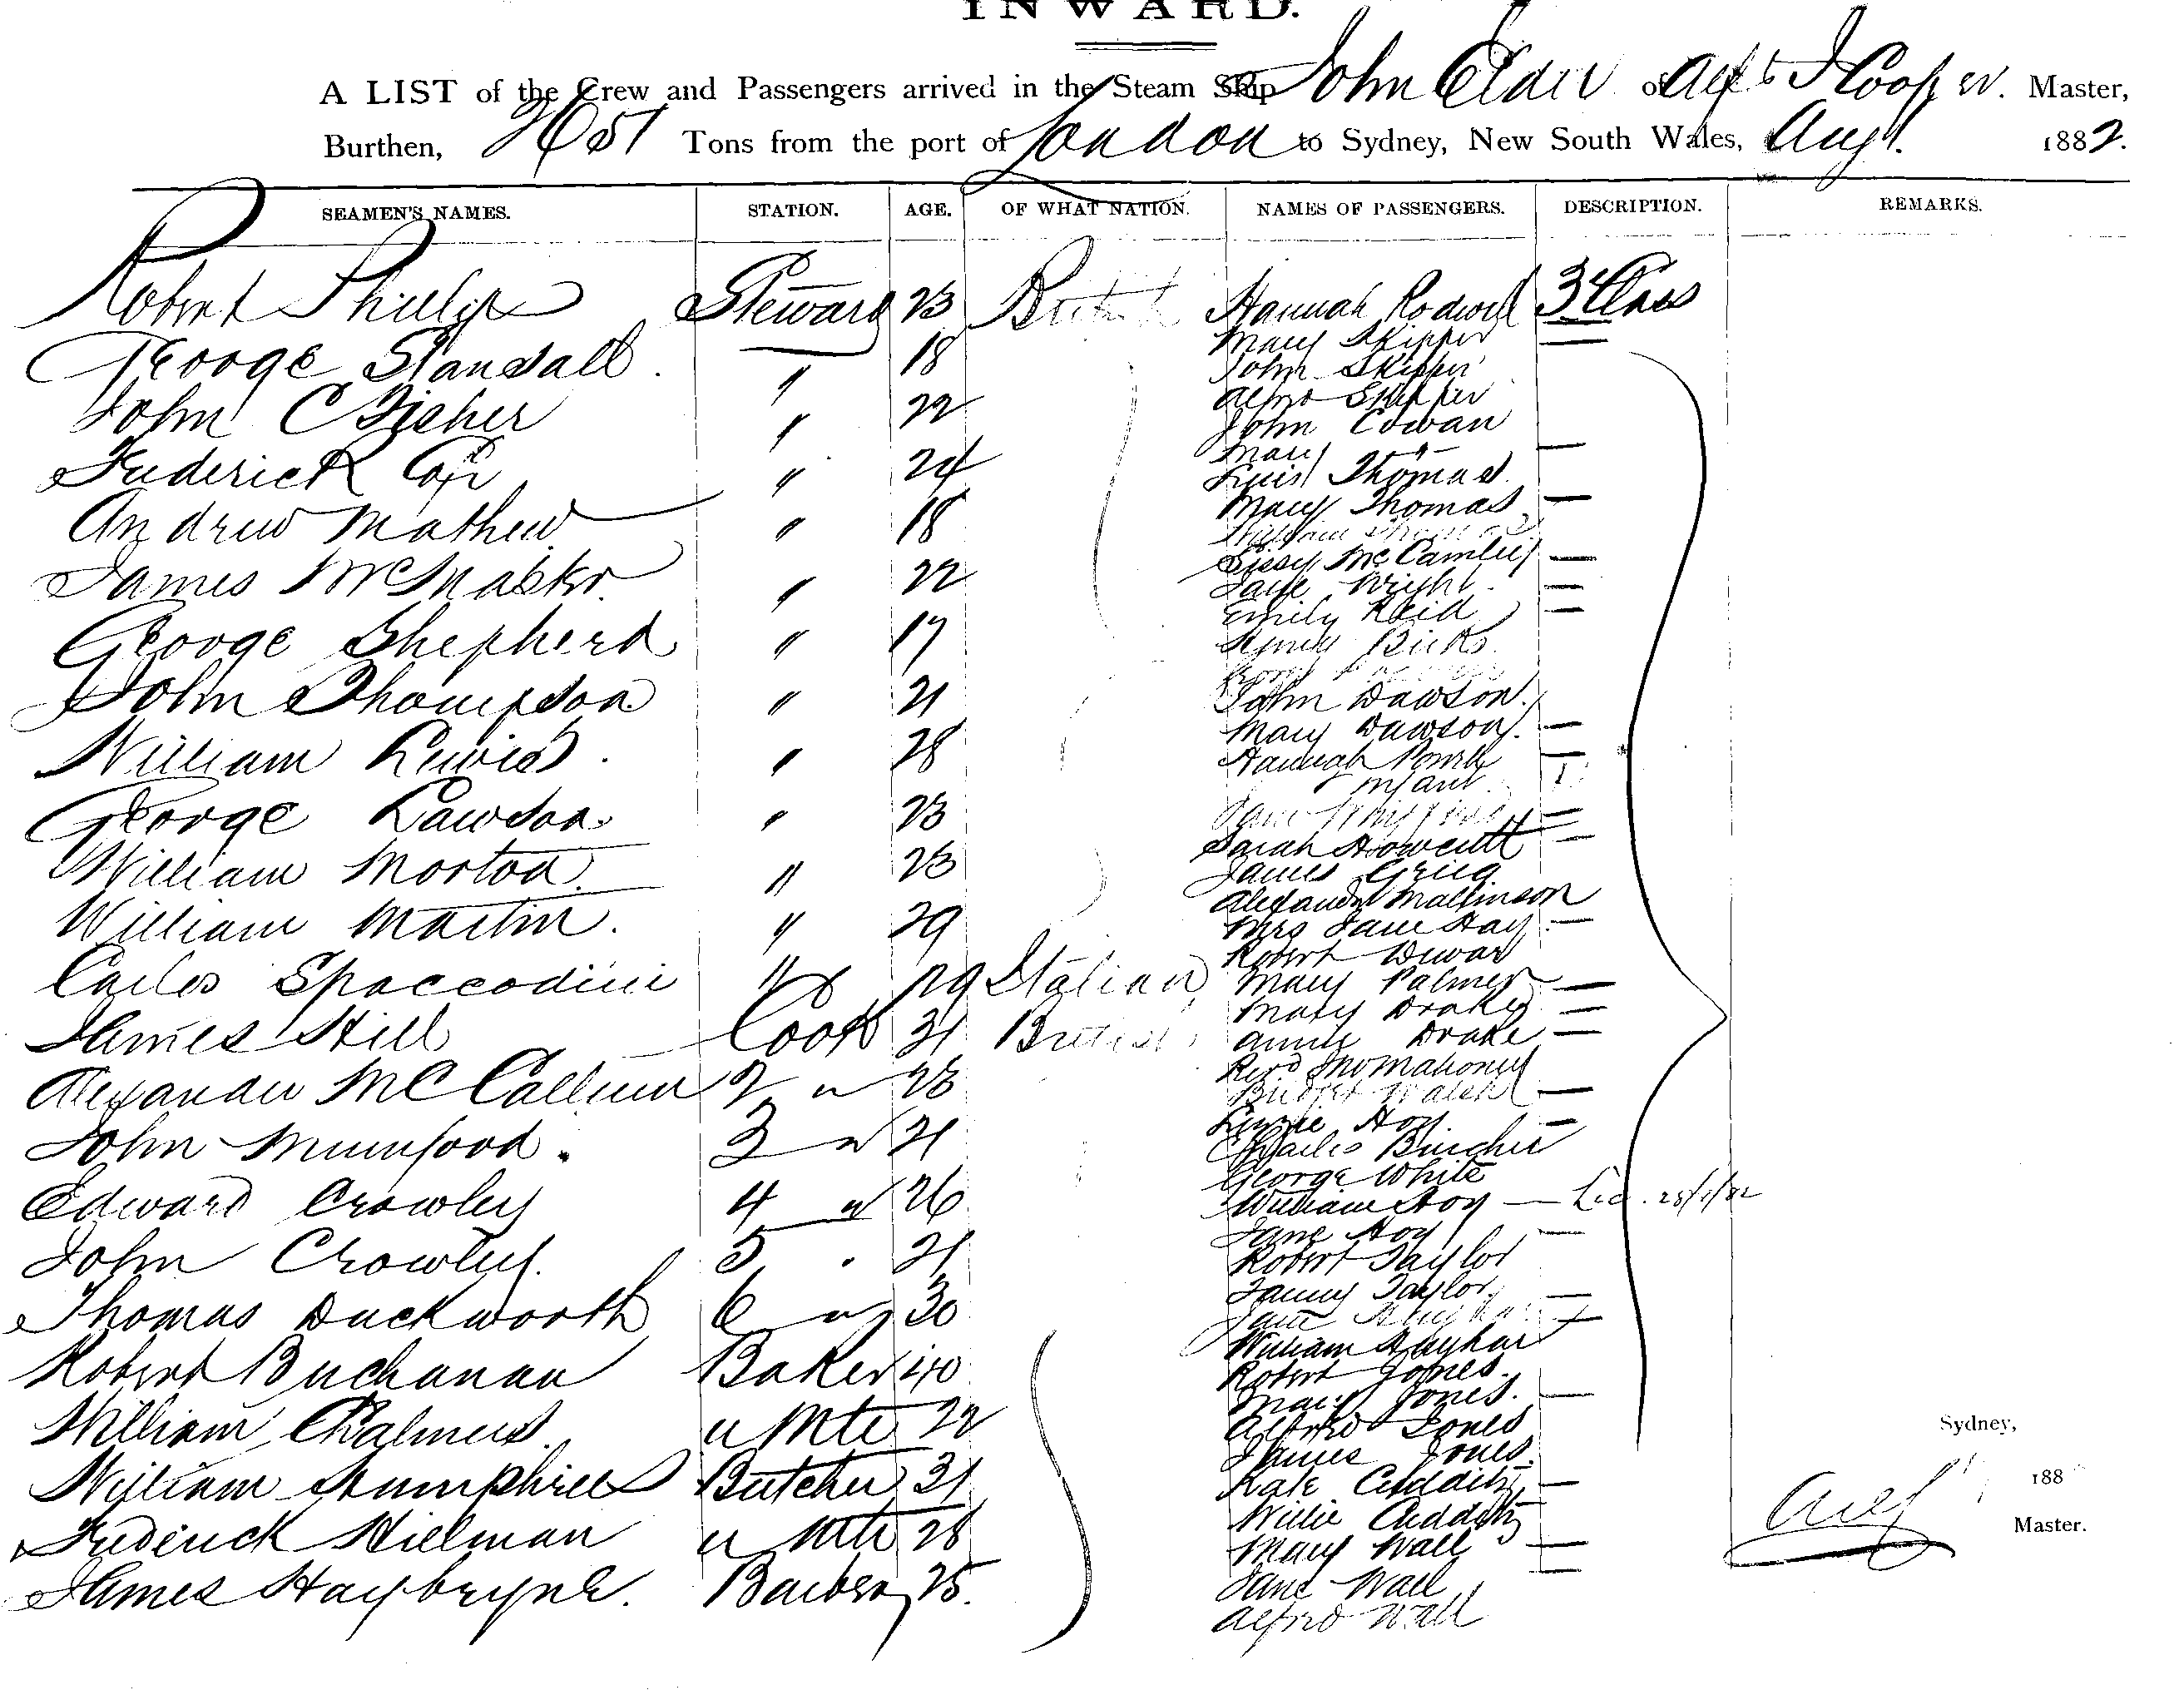 INWARD.
A LIST of the Crew and Passengers arrived in the Steam Ship John Elder of J Cooper. Master,
Burthen, Tons from the port of London to Sydney, New South Wales, Augt. 1882.
SEAMEN'S NAMES. STATION. AGE. OF WHAT NATION. NAMES OF PASSENGERS. DESCRIPTION. REMARKS.
Robert Phillip Steward 23 British Hannah Rodwell 3d Class
George Standall. " 18 Mary Skipper
John Skipper
John C Fisher " 22 Alfred Skipper
John Cowan
Frederick Cox " 24 Mary "
Thomas
Andrew Mathew " 18 Mary Thomas
William Thomas
James McMaster " 22 Sissy McCamley
Jane Wright
George Shepherd " 17 Emily Reid
John Thompson " 21 John Dawson.
William Lewis. " 28 Mary Dawson.
Hannah
" infant 1
George Lawson. " 23 Jane
William Morton. " 23 Sarah Howcutt
James Greig
William Martin. " 29 Alexander Mallinson
Mrs Jane Hay
Robert Dewar
Carlos Spaccodini " 29 Italian Mary Palmer
James Hill Cook 31 British Mary Drake
Annie Drake
Alexander McCallum 2 " 28 Revd Jno Mahoney
Bridget Walsh
John Mumford. 3 " 21 Lizzie Hoy.
Charles Burcher
Edward Crowley 4 " 26 George White
William Hoy
John Crowley. 5 " 21 Jane Hoy
Robert Taylor
Thomas Duckworth 6 " 30 Fanny Taylor
Jane
Robert Buchanan Baker 40 William
Robert Jones.
William Chalmers. " Mte 22 Mary Jones.
Alfred Jones
James Jones.
William Humphries Butcher 31 Kate
Frederick Hillman " Mte 28 Willie
Mary Wall
James Haybryne. Barber 25. Jane Wall
Alfred Wall
Sydney,
188
Master.